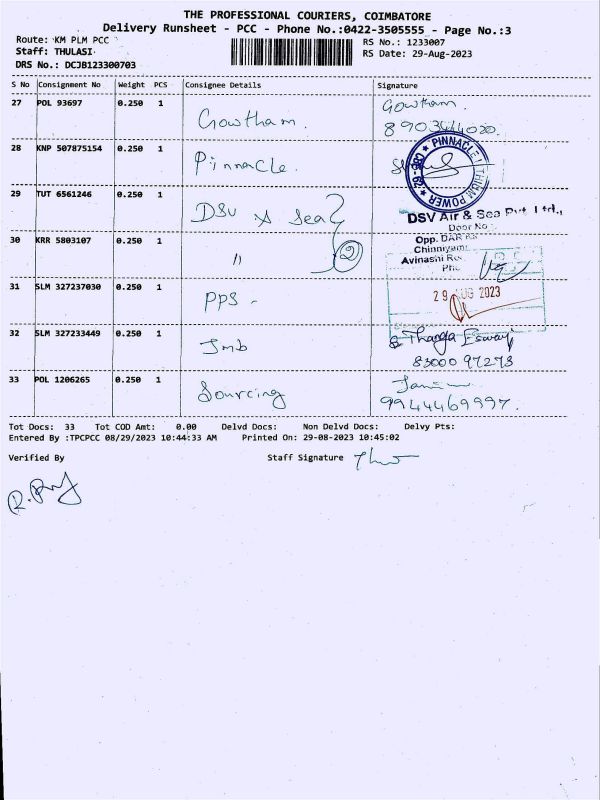 THE PROFESSIONAL COURIERS, COIMBATORE
Delivery Runsheet - PCC - Phone No.:0422-3505555 - Page No.:3
Route: KM PLM PCC
RS No.: 1233007
Staff: THULASI
RS Date: 29-Aug-2023
DRS No.: DCJB123300703
S No Consignment No Weight PCS Consignee Details Signature
27 POL 93697 0.250 1 Gowtham. Gowtham.
28 KNP 507875154 0.250 1 Pinnacle.
PINNACLE LITHIUM POWER
29 TUT 6561246 0.250 1 DSV A Sea
DSV Air & Sea Pvt. Ltd.,
Door No
30 KRR 5803107 0.250 1 " 2
Opp. DAR
Chinniyam
Avinashi Ro
Ph
31 SLM 327237030 0.250 1 PPS -
29 AUG 2023
32 SLM 327233449 0.250 1 Jmb Thanga Eswari
83000 97273
33 POL 1206265 0.250 1 Sourcing
9944469997.
Tot Docs: 33 Tot COD Amt: 0.00 Delvd Docs: Non Delvd Docs: Delvy Pts:
Entered By :TPCPCC 08/29/2023 10:44:33 AM Printed On: 29-08-2023 10:45:02
Verified By Staff Signature